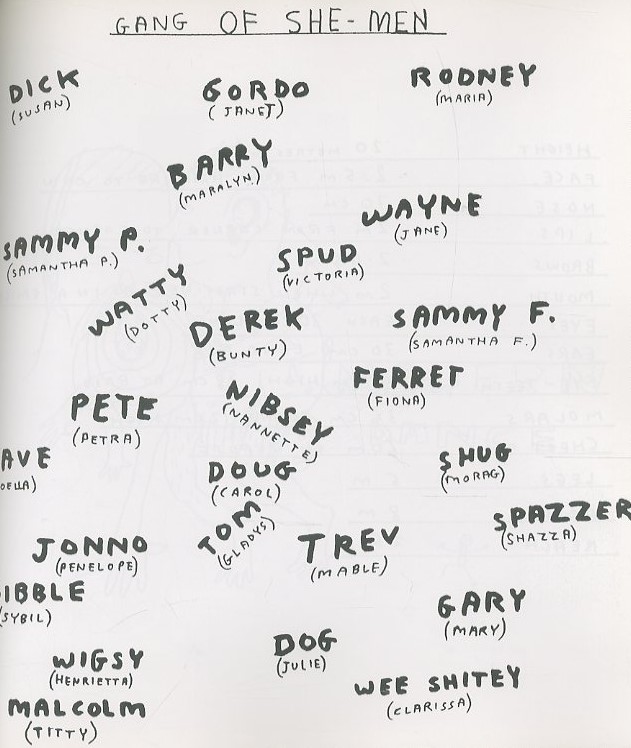 GANG OF SHE-MEN
DICK
(SUSAN)
GORDO
(JANET)
RODNEY
(MARIA)
BARRY
(MARALYN)
WAYNE
(JANE)
SAMMY P.
(SAMANTHA P.)
SPUD
(VICTORIA)
WATTY
(DOTTY)
DEREK
(BUNTY)
SAMMY F.
(SAMANTHA F.)
FERRET
(FIONA)
PETE
(PETRA)
NIBSEY
(NANNETTE)
AVE
DELLA)
DOUG
(CAROL)
SHUG
(MORAG)
TOM
(GLADYS)
SPAZZER
(SHAZZA)
JONNO
(PENELOPE)
TREV
(MABLE)
IBBLE
(SYBIL)
GARY
(MARY)
WIGSY
(HENRIETTA)
DOG
(JULIE)
WEE SHITEY
(CLARISSA)
MALCOLM
(TITTY)